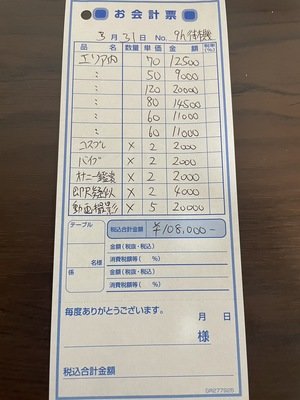 お会計票
3月31日 No. 9h待機
品名 数量 単価 金額 税率(%)
エリア内 70 12500
〃 50 9000
〃 120 20000
〃 80 14500
〃 60 11000
〃 60 11000
コスプレ × 2 2000
バイブ × 2 2000
オナニー鑑賞 × 2 2000
即尺疑似 × 2 4000
動画撮影 × 5 20000
テーブル 税込合計金額 ¥108,000-
金額(税抜・税込)
名様 消費税額等( %)
係 金額(税抜・税込)
消費税額等( %)
毎度ありがとうございます。
月 日
様
税込合計金額
GR277926